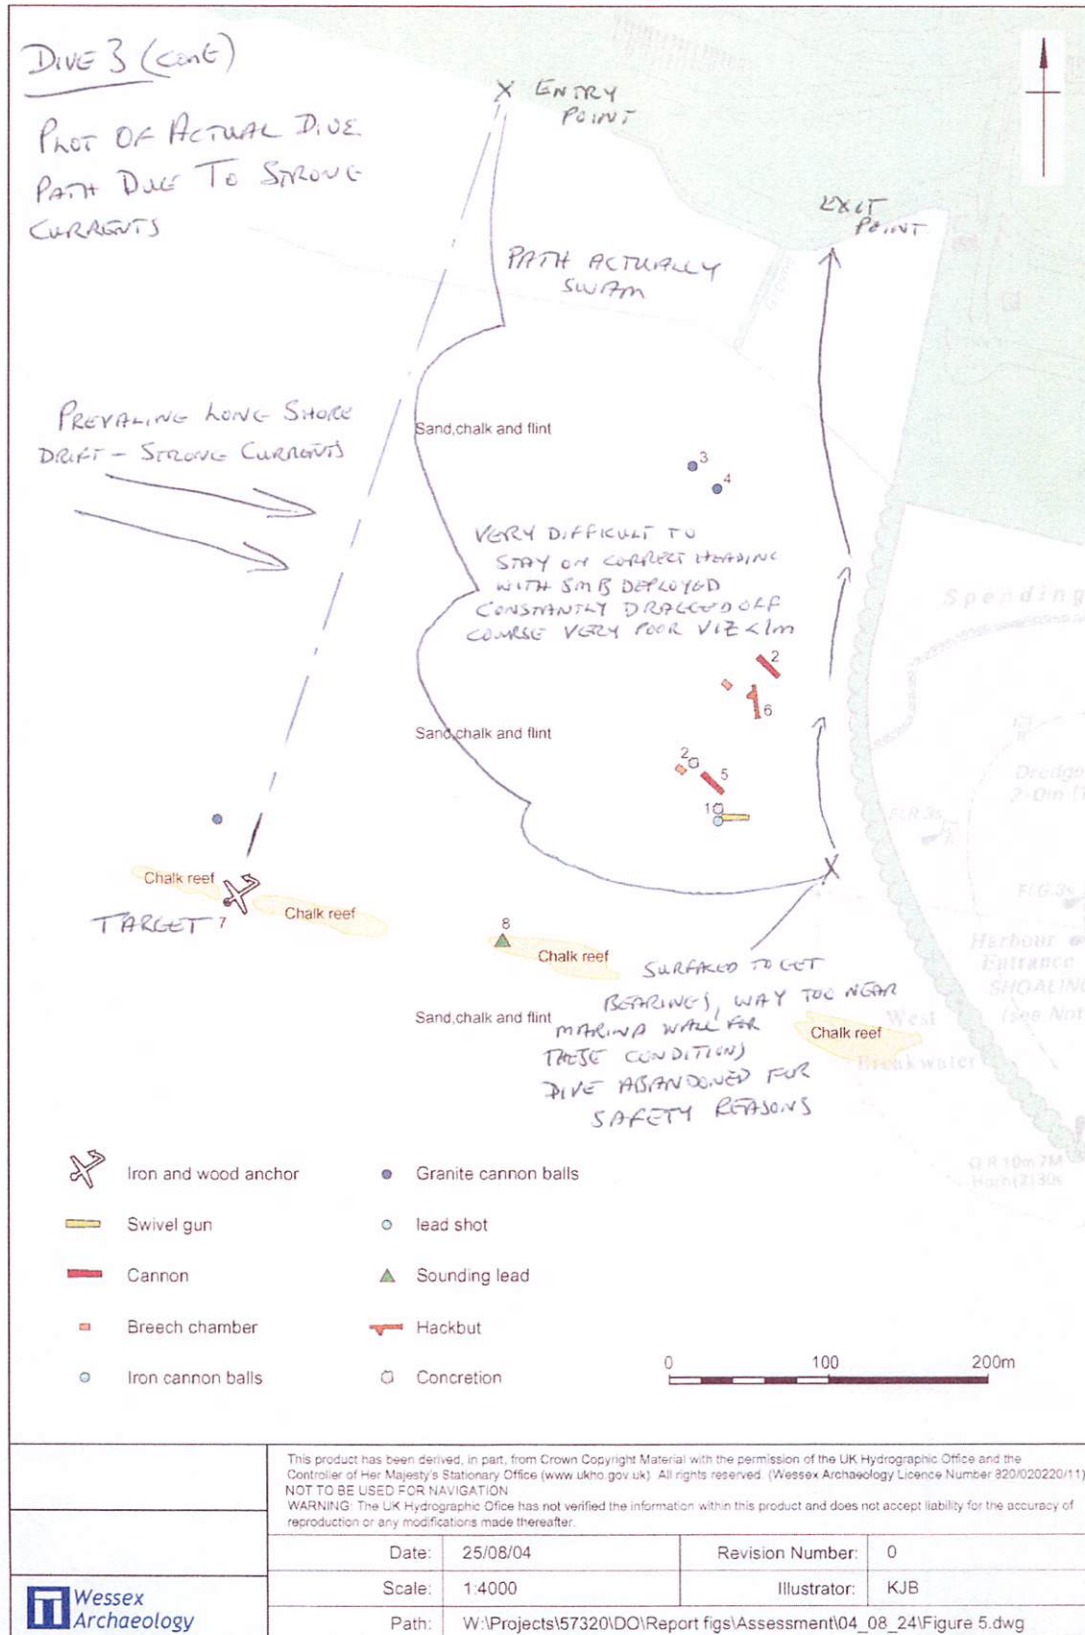 DIVE 3 (CONT)
PLOT OF ACTUAL DIVE
PATH DUE TO STRONG
CURRENTS
X ENTRY
POINT
EXIT
POINT
PATH ACTUALLY
SWAM
PREVALING LONG SHORE
DRIFT - STRONG CURRENTS
Sand,chalk and flint
3
4
VERY DIFFICULT TO
STAY ON CORRECT HEADING
WITH SMB DEPLOYED
CONSTANTLY DRAGGED OFF
COURSE VERY POOR VIZ <1m
Spending
2
6
Sand,chalk and flint
2
5
1
Dredge
2.0m
FLR 3s
X
Chalk reef
Chalk reef
TARGET 7
8
Chalk reef
FLG 3s
Harbour
Entrance
SHOALING
(see Not
SURFACED TO GET
BEARINGS, WAY TOO NEAR
MARINA WALL FOR
THESE CONDITIONS
DIVE ABANDONED FOR
SAFETY REASONS
Sand,chalk and flint
Chalk reef
West
Breakwater
Iron and wood anchor
Granite cannon balls
Swivel gun
lead shot
Cannon
Sounding lead
Breech chamber
Hackbut
Iron cannon balls
Concretion
0 100 200m
This product has been derived, in part, from Crown Copyright Material with the permission of the UK Hydrographic Office and the
Controller of Her Majesty's Stationary Office (www.ukho.gov.uk) All rights reserved. (Wessex Archaeology Licence Number 820/020220/11)
NOT TO BE USED FOR NAVIGATION
WARNING: The UK Hydrographic Ofice has not verified the information within this product and does not accept liability for the accuracy of
reproduction or any modifications made thereafter.
Date: 25/08/04 Revision Number: 0
Scale: 1:4000 Illustrator: KJB
Path: W:\Projects\57320\DO\Report figs\Assessment\04_08_24\Figure 5.dwg
Wessex
Archaeology